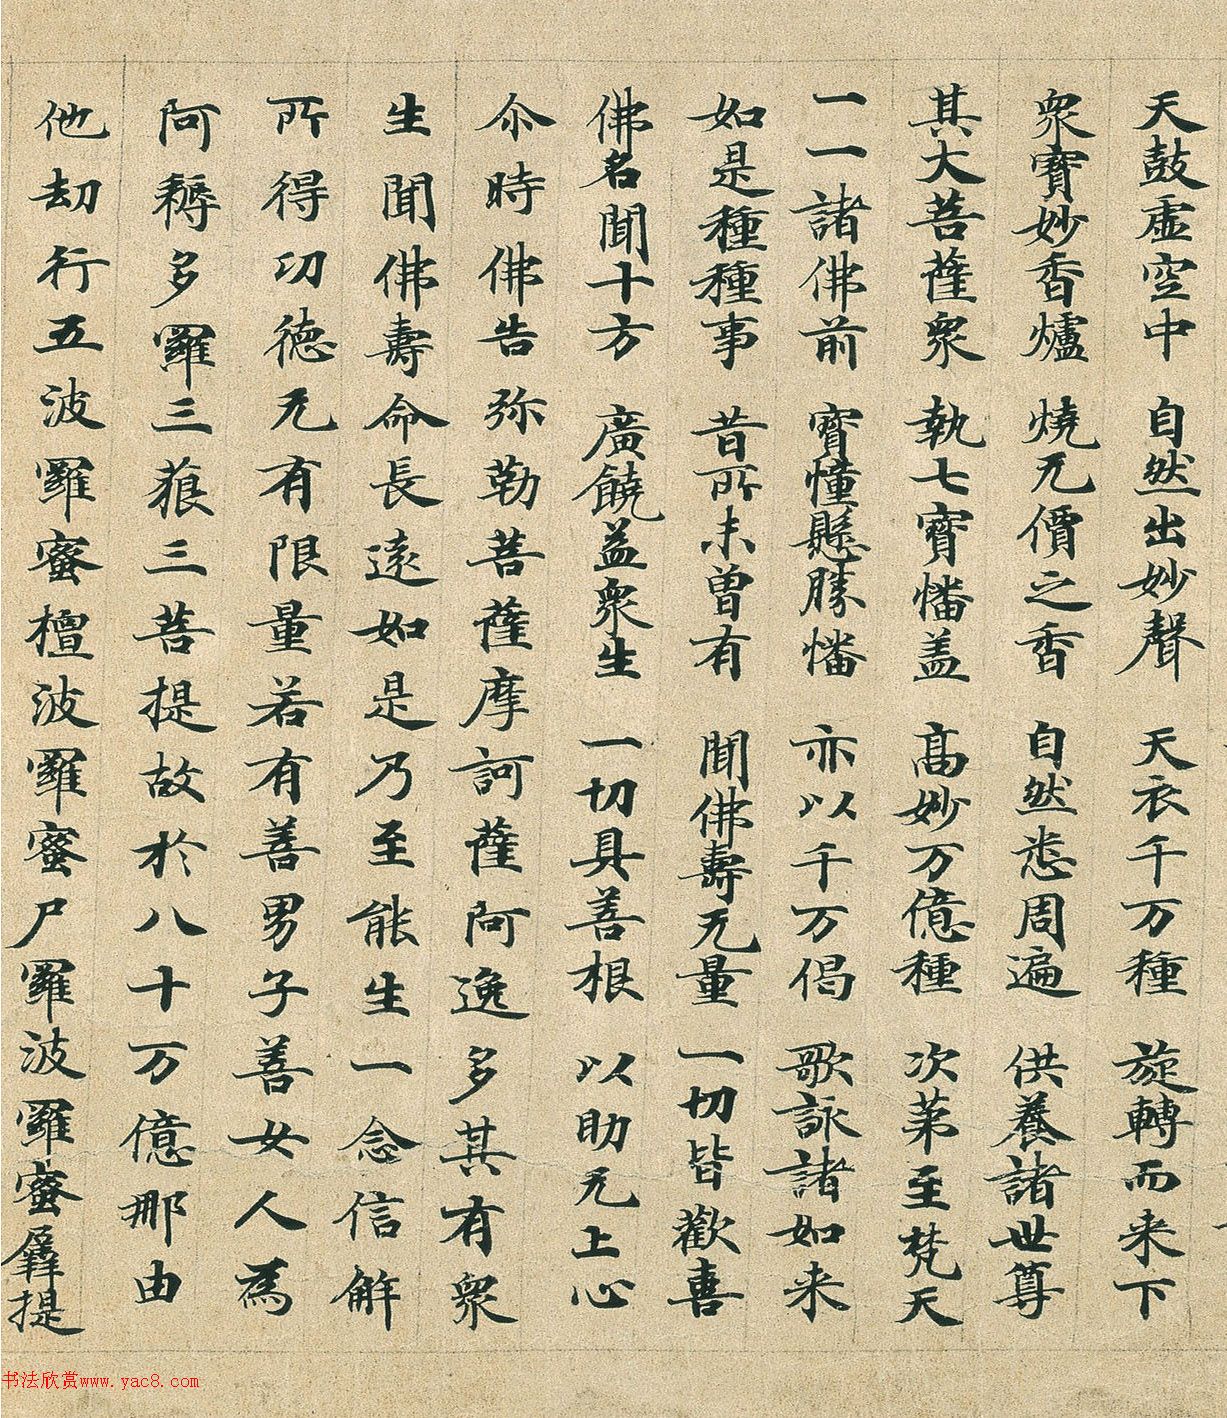 天鼓虛空中 自然出妙聲 天衣千万種 旋轉而来下
衆寶妙香爐 燒无價之香 自然悉周遍 供養諸世尊
其大菩薩衆 執七寶幡盖 高妙万億種 次苐至梵天
一一諸佛前 寶憧懸勝幡 亦以千万偈 歌詠諸如来
如是種種事 昔所未曽有 聞佛壽无量 一切皆歡喜
佛名聞十方 廣饒益衆生 一切具善根 以助无上心
尒時佛告弥勒菩薩摩訶薩阿逸多其有衆
生聞佛壽命長遠如是乃至能生一念信解
所得㓛德无有限量若有善男子善女人為
阿耨多羅三藐三菩提故於八十万億那由
他劫行五波羅蜜檀波羅蜜尸羅波羅蜜羼提
书法欣赏www.yac8.com